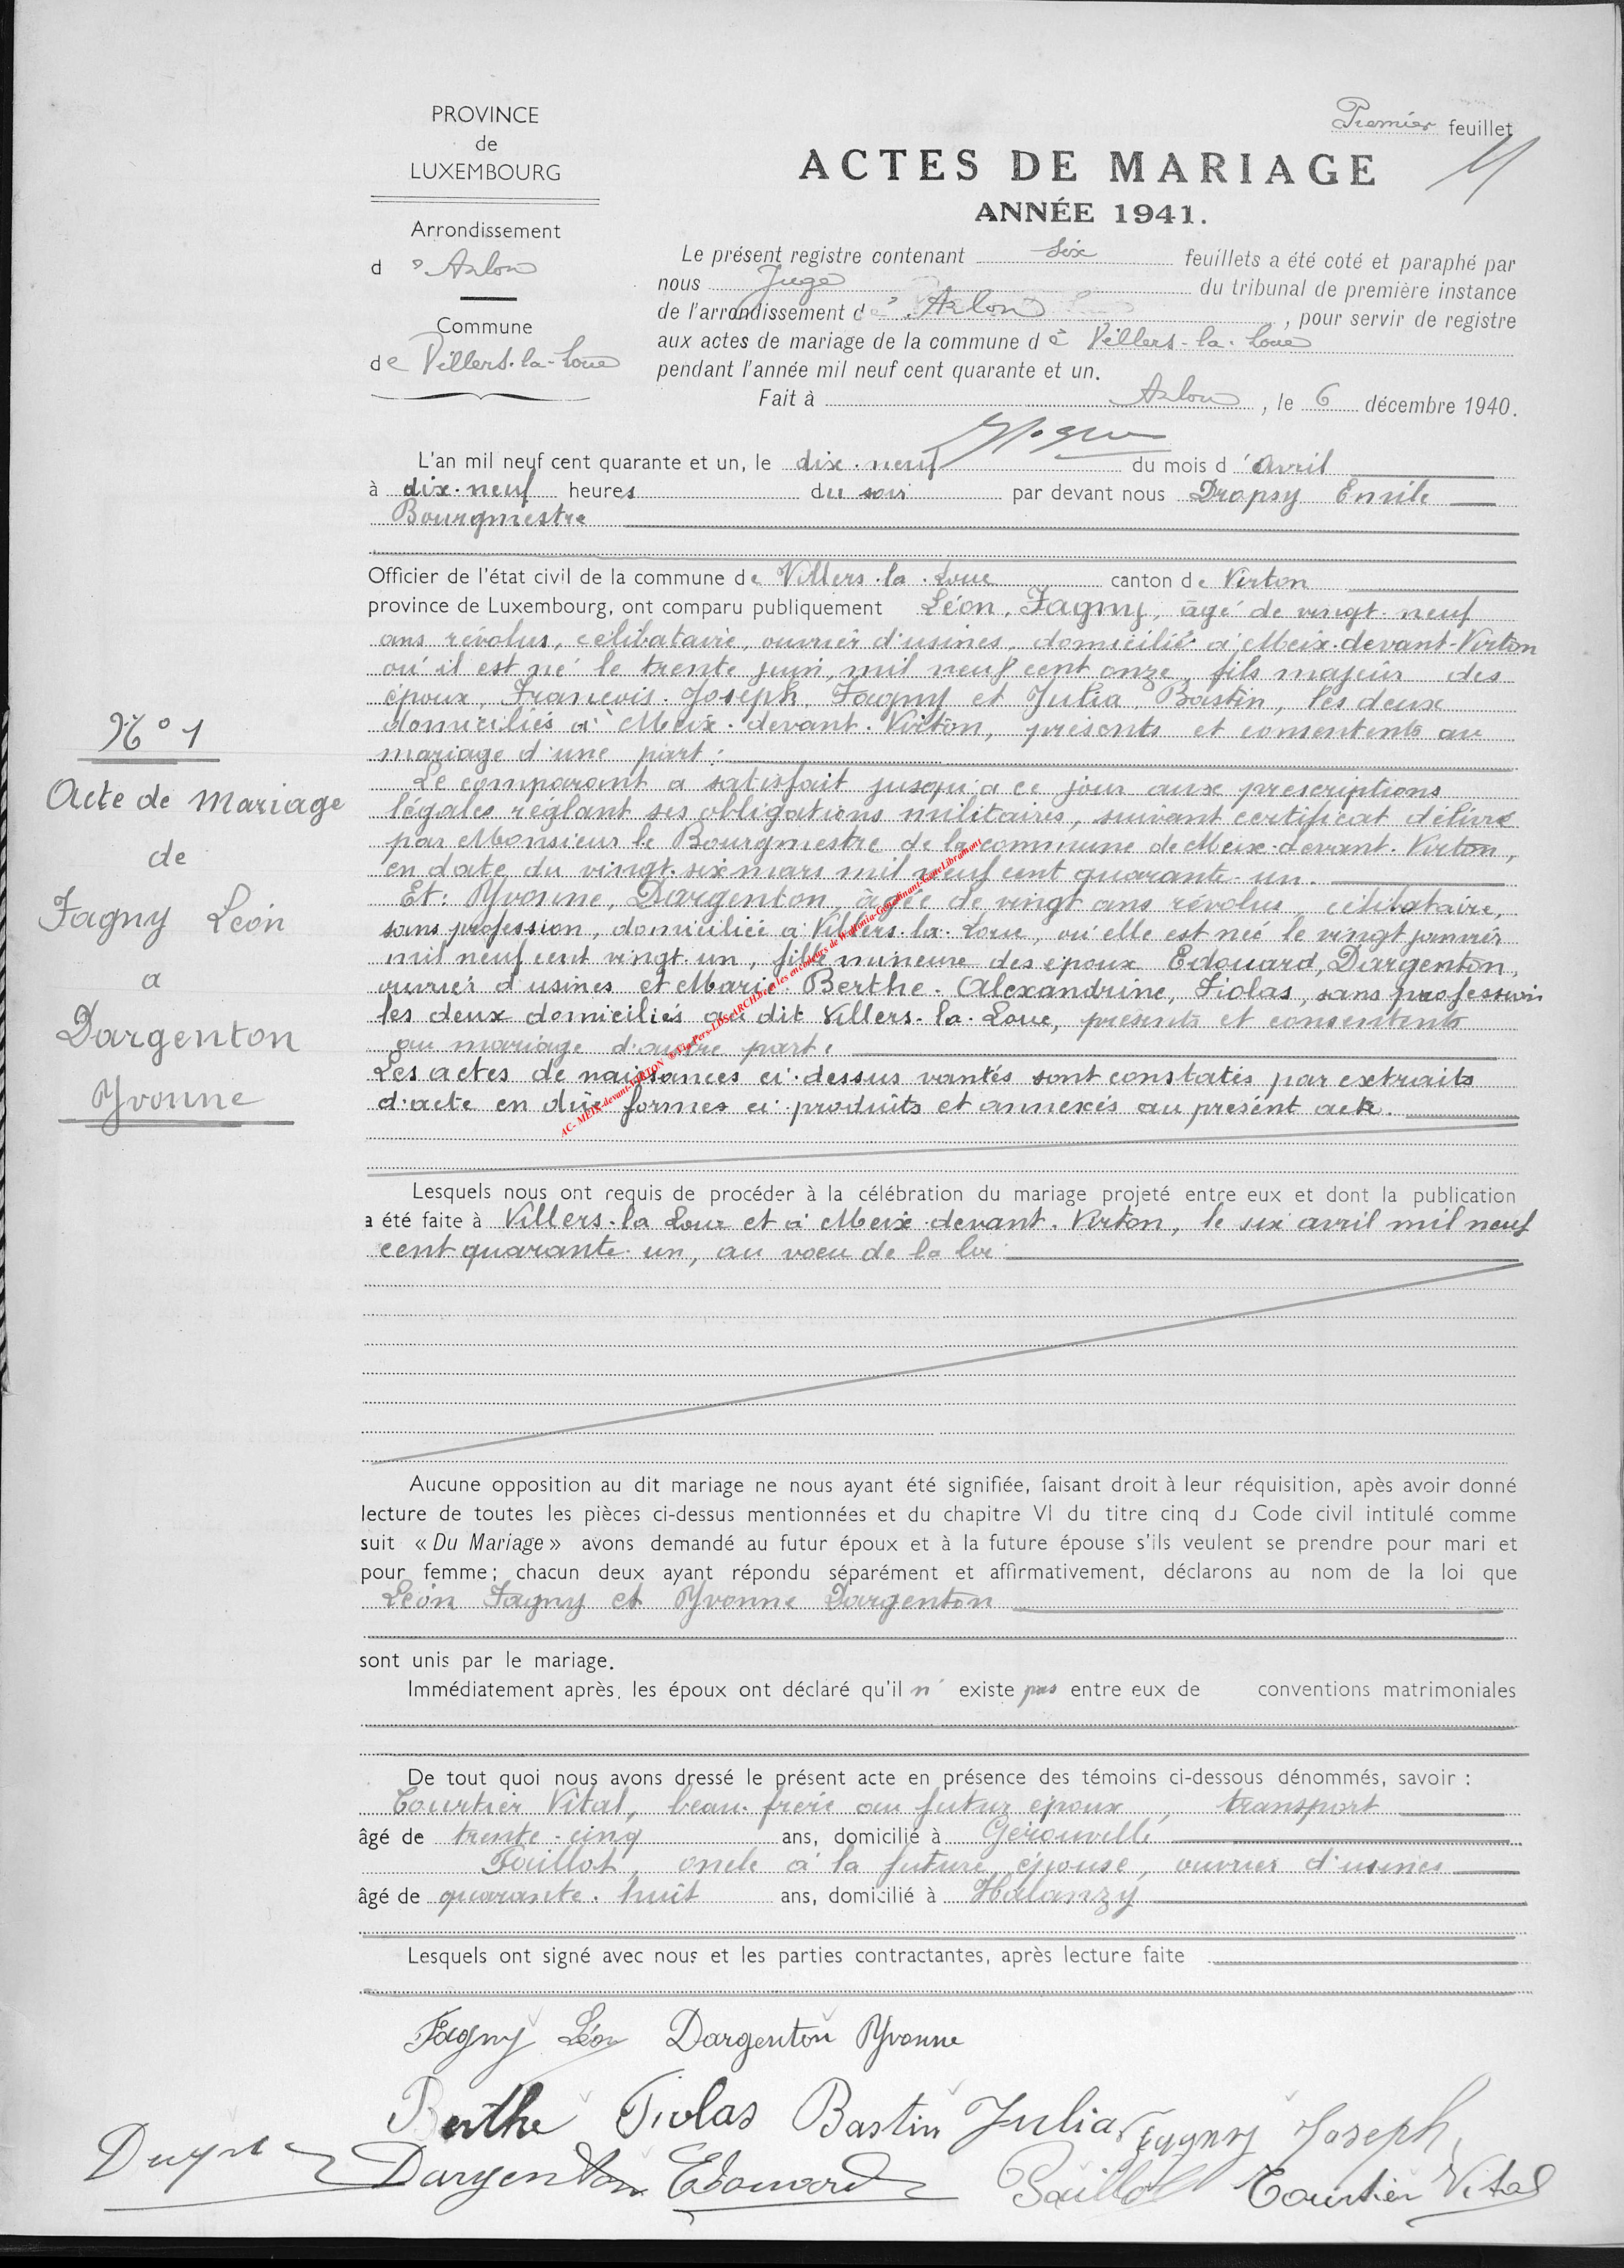 PROVINCE
de
LUXEMBOURG
Arrondissement
d' Arlon
Commune
de Villers-la-Loue
Premier feuillet
ACTES DE MARIAGE
ANNÉE 1941.
Le présent registre contenant six feuillets a été coté et paraphé par
nous Juge du tribunal de première instance
de l'arrondissement d' Arlon, pour servir de registre
aux actes de mariage de la commune de Villers-la-Loue
pendant l'année mil neuf cent quarante et un.
Fait à Arlon, le 6 décembre 1940.
L'an mil neuf cent quarante et un, le dix-neuf du mois d'avril
à dix-neuf heures du soir par devant nous Dropsy Emile
Bourgmestre
Officier de l'état civil de la commune de Villers-la-Loue canton de Virton
province de Luxembourg, ont comparu publiquement Léon, Fagny, âgé de vingt-neuf
ans révolus, célibataire, ouvrier d'usines, domicilié à Meix-devant-Virton
où il est né le trente juin, mil neuf cent onze, fils majeur des
époux, François-Joseph, Fagny et Julia, Bastin, les deux
domiciliés à Meix-devant-Virton, présents et consentents au
mariage d'une part:
Le comparant a satisfait jusqu'à ce jour aux prescriptions
légales réglant ses obligations militaires, suivant certificat délivré
par Monsieur le Bourgmestre de la commune de Meix-devant-Virton,
en date du vingt-six mars mil neuf cent quarante-un.
Et: Yvonne, Dargenton, âgée de vingt ans révolus célibataire,
sans profession, domiciliée à Villers-la-Loue, où elle est née le vingt janvier
mil neuf cent vingt un, fille mineure des époux Edouard, Dargenton,
ouvrier d'usines et Marie-Berthe-Alexandrine, Fiolas, sans profession
les deux domiciliés au dit Villers-la-Loue, présents et consentents
au mariage d'autre part:
Les actes de naissances ci-dessus vantés sont constatés par extraits
d'acte en dûe formes ci-produits et annexés au présent acte.
N° 1
Acte de Mariage
de
Fagny Léon
a
Dargenton
Yvonne
AC- MEIX-devant-VIRTON ©Via Pers-LDS-ARCH.be & les encodeurs de Wallonia-GeneDinant-GeneLibramont
Lesquels nous ont requis de procéder à la célébration du mariage projeté entre eux et dont la publication
a été faite à Villers-la-Loue et à Meix-devant-Virton, le six avril mil neuf
cent quarante-un, au voeu de la loi
Aucune opposition au dit mariage ne nous ayant été signifiée, faisant droit à leur réquisition, apès avoir donné
lecture de toutes les pièces ci-dessus mentionnées et du chapitre VI du titre cinq du Code civil intitulé comme
suit « Du Mariage » avons demandé au futur époux et à la future épouse s'ils veulent se prendre pour mari et
pour femme; chacun deux ayant répondu séparément et affirmativement, déclarons au nom de la loi que
Léon Fagny et Yvonne Dargenton
sont unis par le mariage.
Immédiatement après, les époux ont déclaré qu'il n' existe pas entre eux de conventions matrimoniales
De tout quoi nous avons dressé le présent acte en présence des témoins ci-dessous dénommés, savoir :
Courtier Vital, beau-frère au futur époux, transport
âgé de trente-cinq ans, domicilié à Gérouvelle
Pouillot, oncle à la future épouse, ouvrier d'usines
âgé de quarante-huit ans, domicilié à Halanzy
Lesquels ont signé avec nous et les parties contractantes, après lecture faite
Fagny Léon Dargenton Yvonne
Berthe Fiolas Bastin Julia Fagny Joseph
Dargenton Edouard Courtier Vital